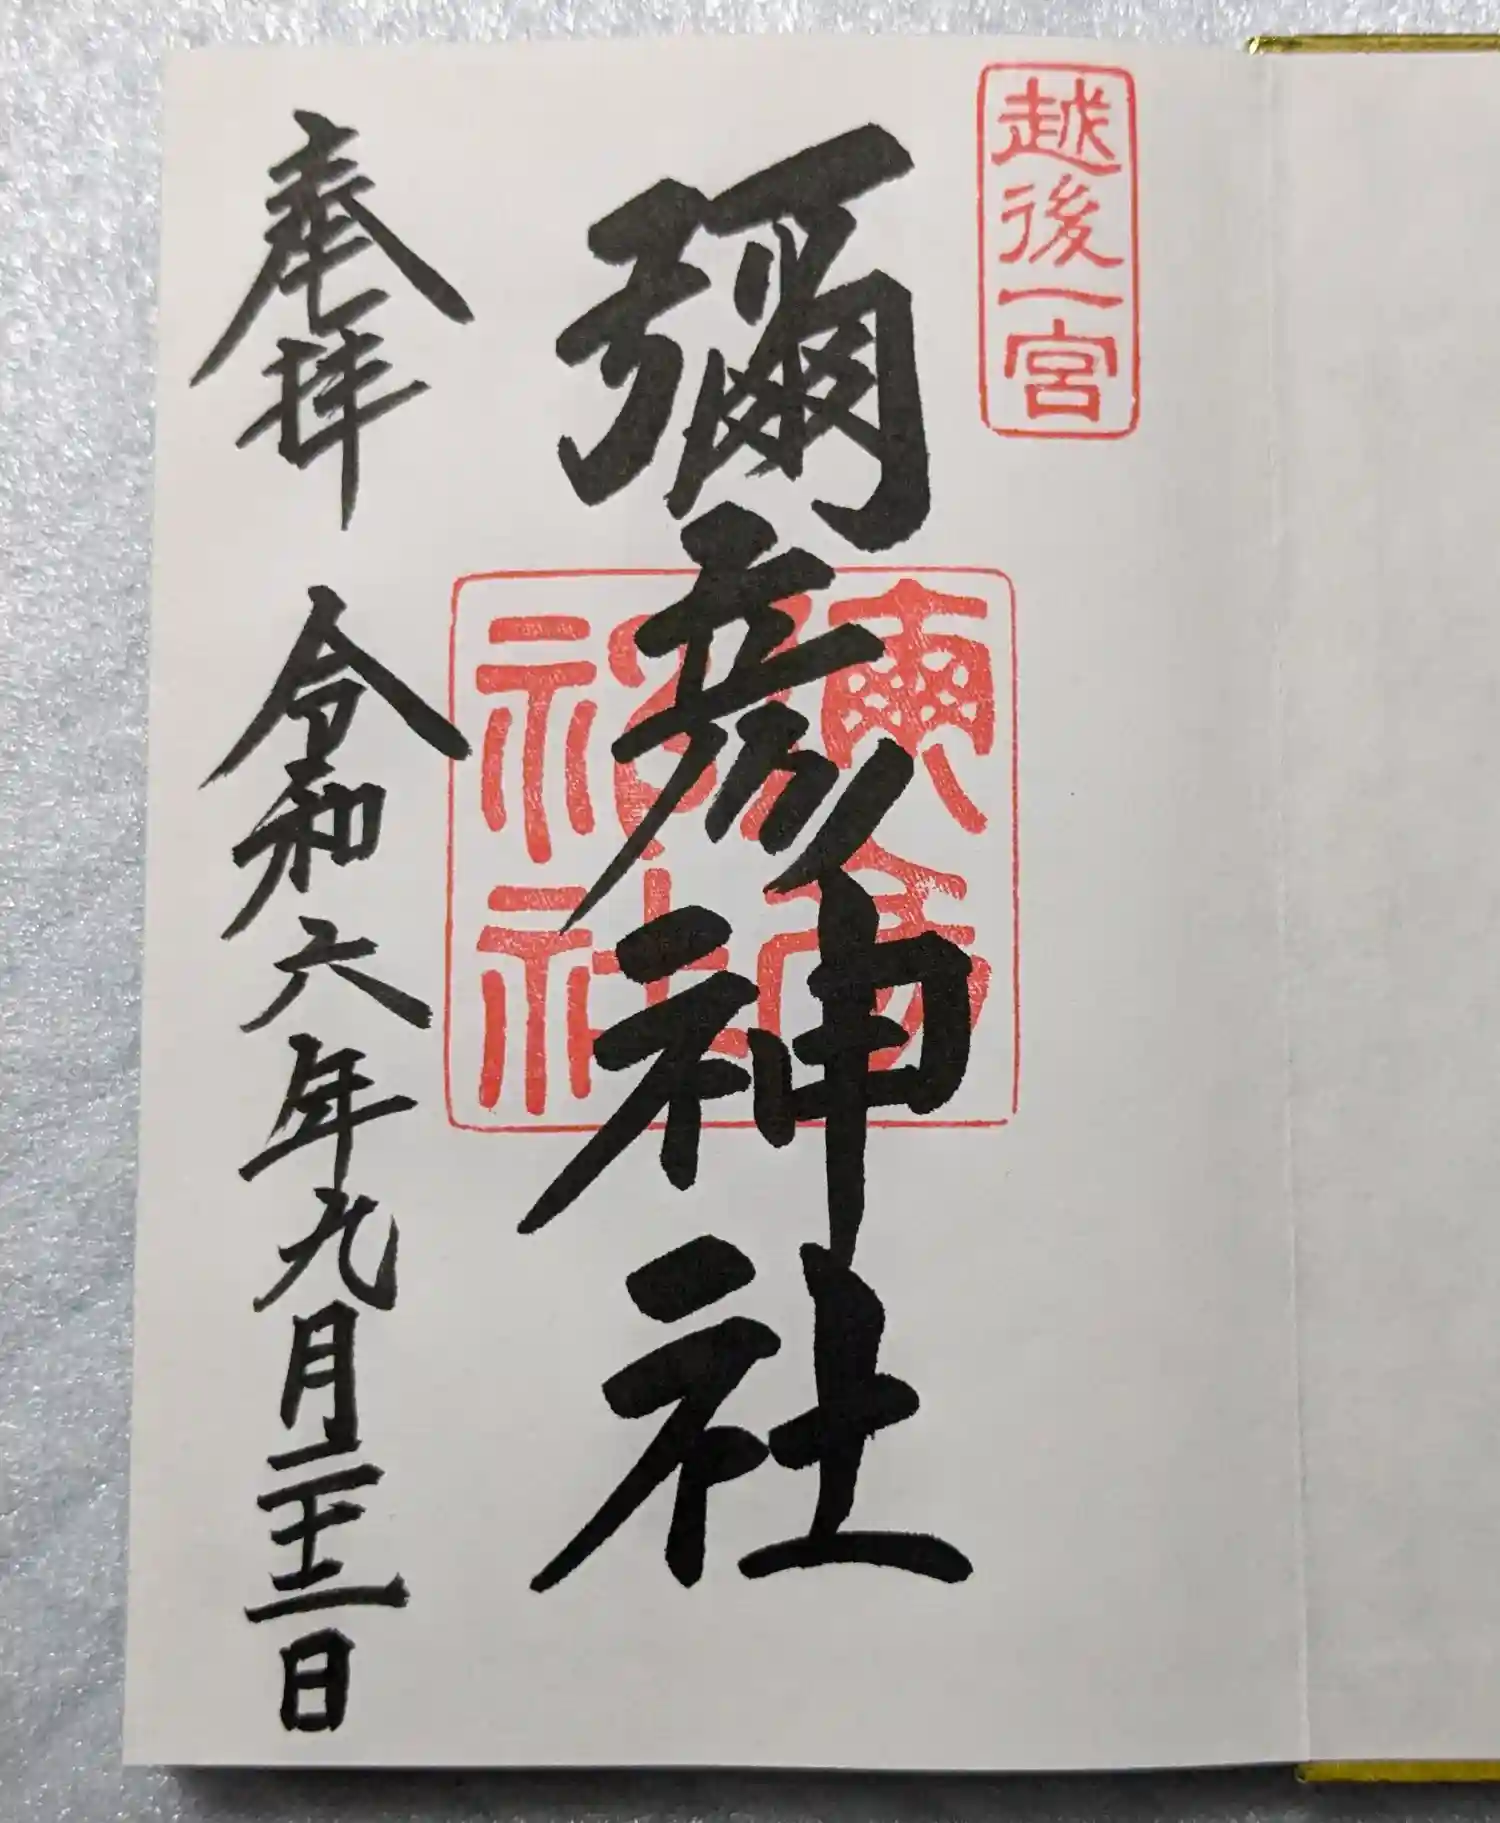 越後一宮
彌彦神社
彌彦神社
奉拝 令和六年九月二十二日